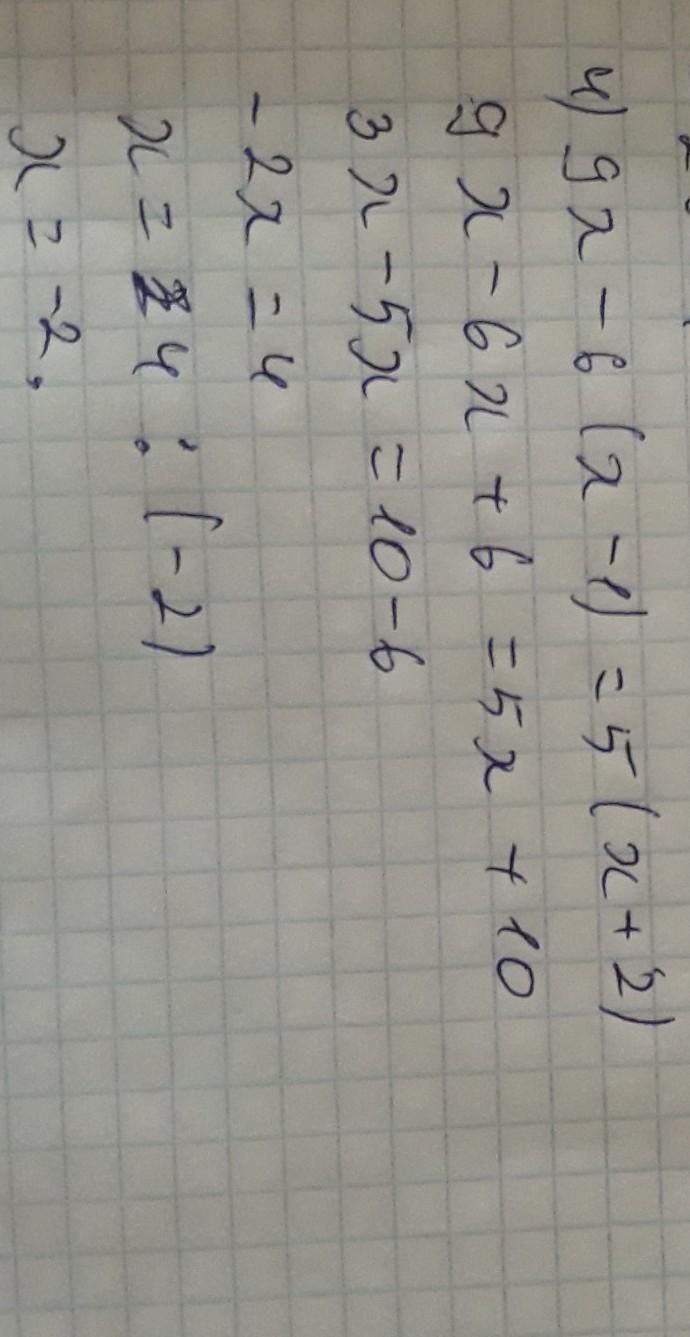 4) 9x - 6(x - 1) = 5(x + 2)
9x - 6x + 6 = 5x + 10
3x - 5x = 10 - 6
-2x = 4
x = 4 : (-2)
x = -2.